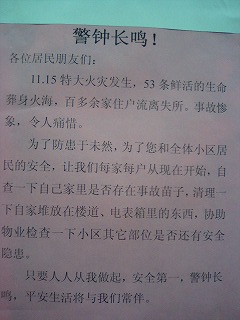 警钟长鸣！
各位居民朋友们：
11.15 特大火灾发生，53 条鲜活的生命
葬身火海，百多余家住户流离失所。事故惨
象，令人痛惜。
为了防患于未然，为了您和全体小区居
民的安全，让我们每家每户从现在开始，自
查一下自己家里是否存在事故苗子，清理一
下自家堆放在楼道、电表箱里的东西，协助
物业检查一下小区其它部位是否还有安全
隐患。
只要人人从我做起，安全第一，警钟长
鸣，平安生活将与我们常伴。